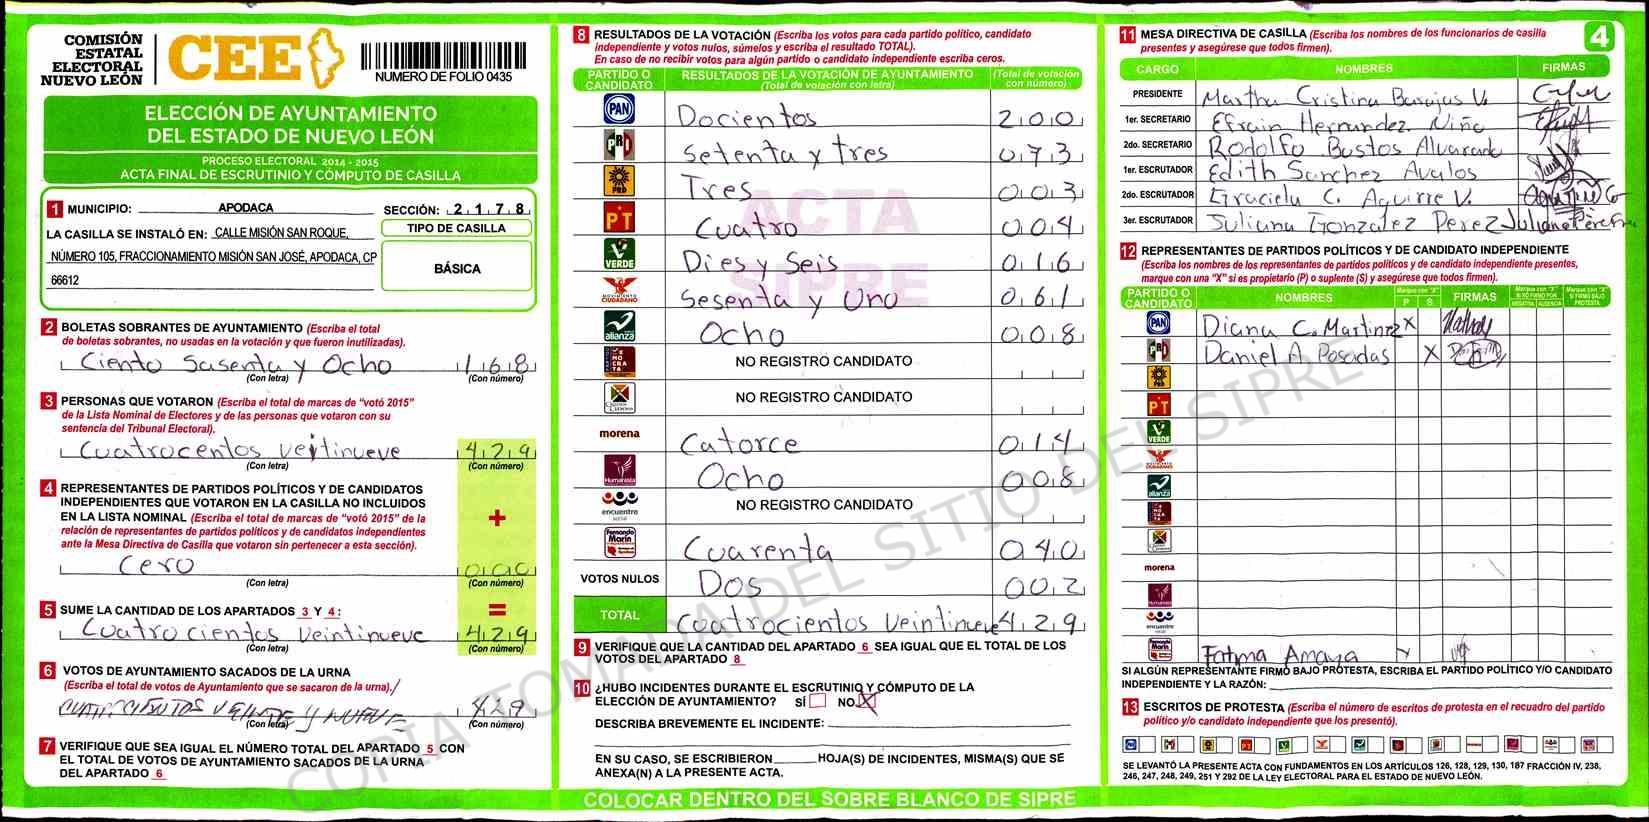 COMISIÓN
ESTATAL
ELECTORAL
NUEVO LEÓN
CEE
NUMERO DE FOLIO 0435
ELECCIÓN DE AYUNTAMIENTO
DEL ESTADO DE NUEVO LEÓN
PROCESO ELECTORAL 2014 - 2015
ACTA FINAL DE ESCRUTINIO Y CÓMPUTO DE CASILLA
1 MUNICIPIO: APODACA SECCIÓN: 2 1 7 8
LA CASILLA SE INSTALÓ EN: CALLE MISIÓN SAN ROQUE,
NÚMERO 105, FRACCIONAMIENTO MISIÓN SAN JOSÉ, APODACA, CP
66612
TIPO DE CASILLA
BÁSICA
2 BOLETAS SOBRANTES DE AYUNTAMIENTO (Escriba el total
de boletas sobrantes, no usadas en la votación y que fueron inutilizadas).
Ciento Sasenta y Ocho 1 6 8
(Con letra) (Con número)
3 PERSONAS QUE VOTARON (Escriba el total de marcas de "votó 2015"
de la Lista Nominal de Electores y de las personas que votaron con su
sentencia del Tribunal Electoral).
Cuatrocentos veitinueve 4 2 9
(Con letra) (Con número)
4 REPRESENTANTES DE PARTIDOS POLÍTICOS Y DE CANDIDATOS
INDEPENDIENTES QUE VOTARON EN LA CASILLA NO INCLUIDOS
EN LA LISTA NOMINAL (Escriba el total de marcas de "votó 2015" de la
relación de representantes de partidos políticos y de candidatos independientes
ante la Mesa Directiva de Casilla que votaron sin pertenecer a esta sección).
+
Cero 0 0 0
(Con letra) (Con número)
=
5 SUME LA CANTIDAD DE LOS APARTADOS 3 Y 4:
Cuatro cientos veintinueve 4 2 9
(Con letra) (Con número)
6 VOTOS DE AYUNTAMIENTO SACADOS DE LA URNA
(Escriba el total de votos de Ayuntamiento que se sacaron de la urna).
CUATROCIENTOS VEINTE Y NUEVE 429
(Con letra) (Con número)
7 VERIFIQUE QUE SEA IGUAL EL NÚMERO TOTAL DEL APARTADO 5 CON
EL TOTAL DE VOTOS DE AYUNTAMIENTO SACADOS DE LA URNA
DEL APARTADO 6
8 RESULTADOS DE LA VOTACIÓN (Escriba los votos para cada partido político, candidato
independiente y votos nulos, súmelos y escriba el resultado TOTAL).
En caso de no recibir votos para algún partido o candidato independiente escriba ceros.
PARTIDO O CANDIDATO RESULTADOS DE LA VOTACIÓN DE AYUNTAMIENTO (Total de votación con letra) (Total de votación con número)
PAN Docientos 2 0 0
PRI Setenta y tres 0 7 3
PRD Tres 0 0 3
PT Cuatro 0 0 4
VERDE Dies y Seis 0 1 6
MOVIMIENTO CIUDADANO Sesenta y Uno 0 6 1
alianza Ocho 0 0 8
NO REGISTRO CANDIDATO
NO REGISTRO CANDIDATO
morena Catorce 0 1 4
Humanista Ocho 0 0 8
encuentro social NO REGISTRO CANDIDATO
Fernando Marín Cuarenta 0 4 0
VOTOS NULOS Dos 0 0 2
TOTAL Cuatrocientos Veintinueve 4 2 9
ACTA
SIPRE
9 VERIFIQUE QUE LA CANTIDAD DEL APARTADO 6 SEA IGUAL QUE EL TOTAL DE LOS
VOTOS DEL APARTADO 8
10 ¿HUBO INCIDENTES DURANTE EL ESCRUTINIO Y CÓMPUTO DE LA
ELECCIÓN DE AYUNTAMIENTO? SÍ NO X
DESCRIBA BREVEMENTE EL INCIDENTE:
EN SU CASO, SE ESCRIBIERON HOJA(S) DE INCIDENTES, MISMA(S) QUE SE
ANEXA(N) A LA PRESENTE ACTA.
COLOCAR DENTRO DEL SOBRE BLANCO DE SIPRE
11 MESA DIRECTIVA DE CASILLA (Escriba los nombres de los funcionarios de casilla
presentes y asegúrese que todos firmen).
4
CARGO NOMBRES FIRMAS
PRESIDENTE Martha Cristina Barajas V.
1er. SECRETARIO Efrain Hernandez Niño
2do. SECRETARIO Rodolfo Bustos Alvarado
1er. ESCRUTADOR Edith Sanchez Avalos
2do. ESCRUTADOR Graciela C. Aguirre V.
3er. ESCRUTADOR Juliana Gonzalez Perez
12 REPRESENTANTES DE PARTIDOS POLÍTICOS Y DE CANDIDATO INDEPENDIENTE
(Escriba los nombres de los representantes de partidos políticos y de candidato independiente presentes,
marque con una "X" si es propietario (P) o suplente (S) y asegúrese que todos firmen).
PARTIDO O CANDIDATO NOMBRES Marque con "X" P S FIRMAS Marque con "X" SI NO FIRMÓ POR NEGATIVA AUSENCIA Marque con "X" SI FIRMÓ BAJO PROTESTA
PAN Diana C. Martinez X
PRI Daniel A Posadas X
PRD
PT
VERDE
alianza
morena
Humanista
encuentro social
Fatima Amaya
SI ALGÚN REPRESENTANTE FIRMÓ BAJO PROTESTA, ESCRIBA EL PARTIDO POLÍTICO Y/O CANDIDATO
INDEPENDIENTE Y LA RAZÓN:
13 ESCRITOS DE PROTESTA (Escriba el número de escritos de protesta en el recuadro del partido
político y/o candidato independiente que los presentó).
SE LEVANTÓ LA PRESENTE ACTA CON FUNDAMENTOS EN LOS ARTÍCULOS 126, 128, 129, 130, 187 FRACCIÓN IV, 238,
246, 247, 248, 249, 251 Y 292 DE LA LEY ELECTORAL PARA EL ESTADO DE NUEVO LEÓN.
COPIA TOMADA DEL SITIO DEL SIPRE